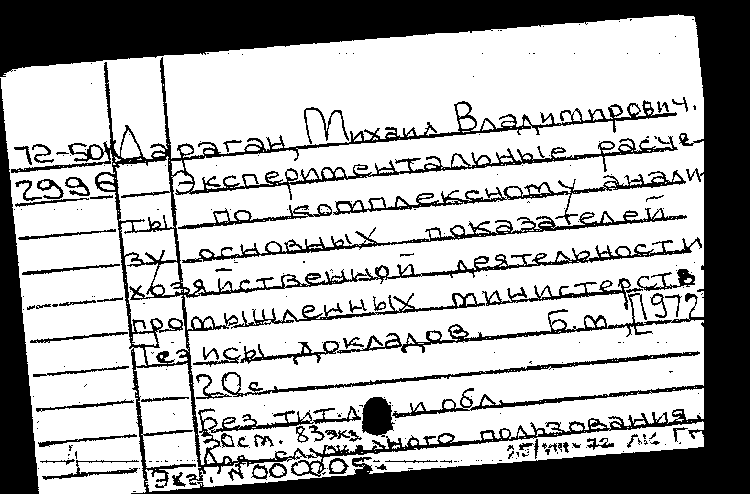 72-50к Дараган, Михаил Владимирович.
2996 Экспериментальные расче-
ты по комплексному анали
зу основных показателей
хозяйственной деятельности
промышленных министерств.
Тезисы докладов. Б.м., [1972]
20с.
Без тит.л. и обл.
30см. 83экз.
Для служебного пользования.
Экз. N000005. 25/VIII-72